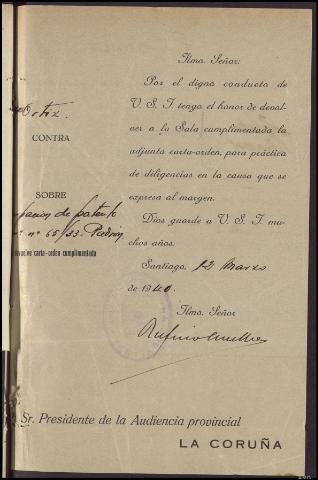 Ilmo. Señor:
Por el digno conducto de
V. S. I. tengo el honor de devol-
ver a la Sala cumplimentada la
adjunta carta-orden, para práctica
de diligencias en la causa que se
expresa al margen.
Dios guarde a V. S. I. mu-
chos años.
Santiago, 12 Marzo
de 1940.
Ilmo. Señor
Ortiz.
CONTRA
SOBRE
de patente
nº 65/33-Padrón
devuelve carta-orden cumplimentada
Sr. Presidente de la Audiencia provincial
LA CORUÑA